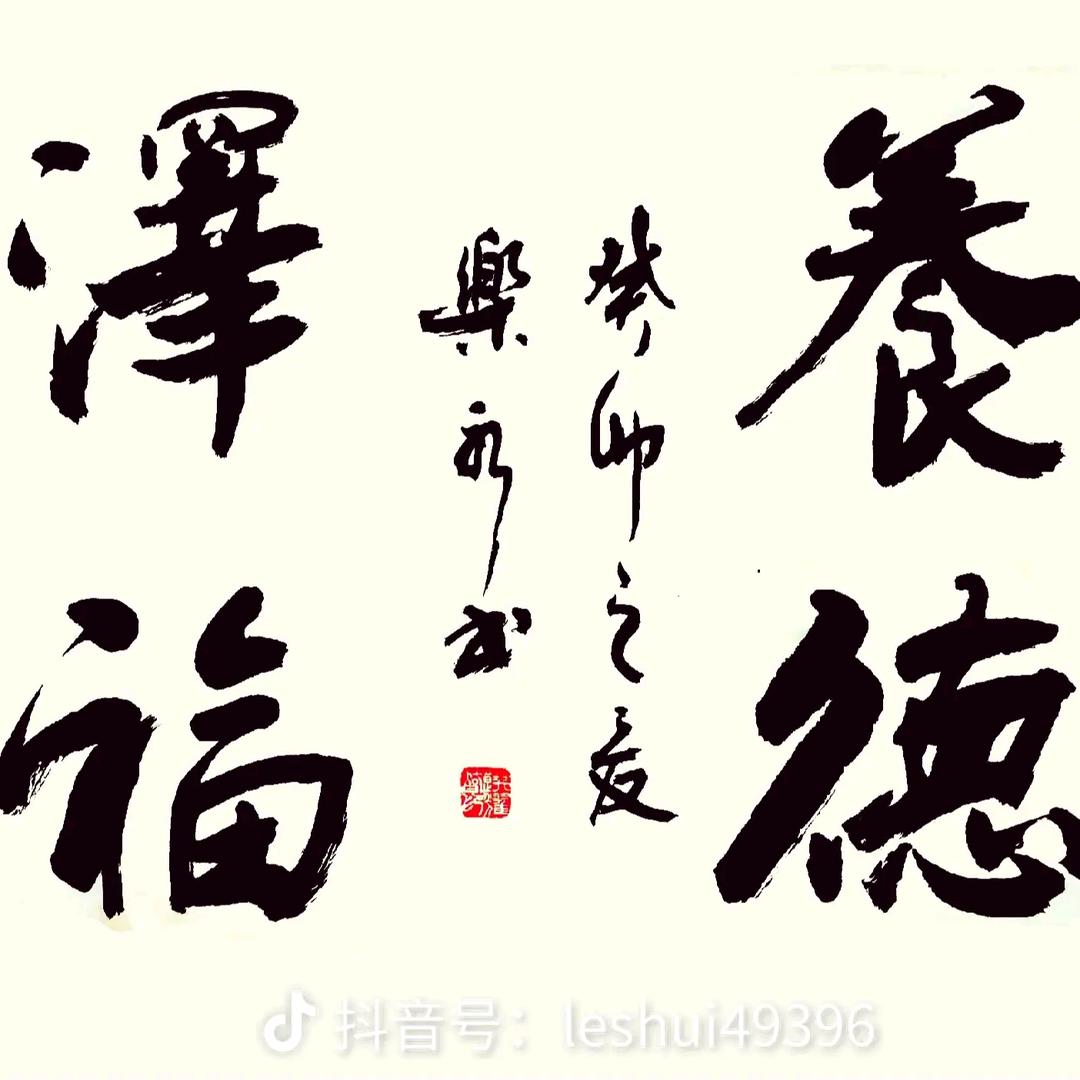 養德
癸卯之夏
樂水书
澤福
抖音号：leshui49396